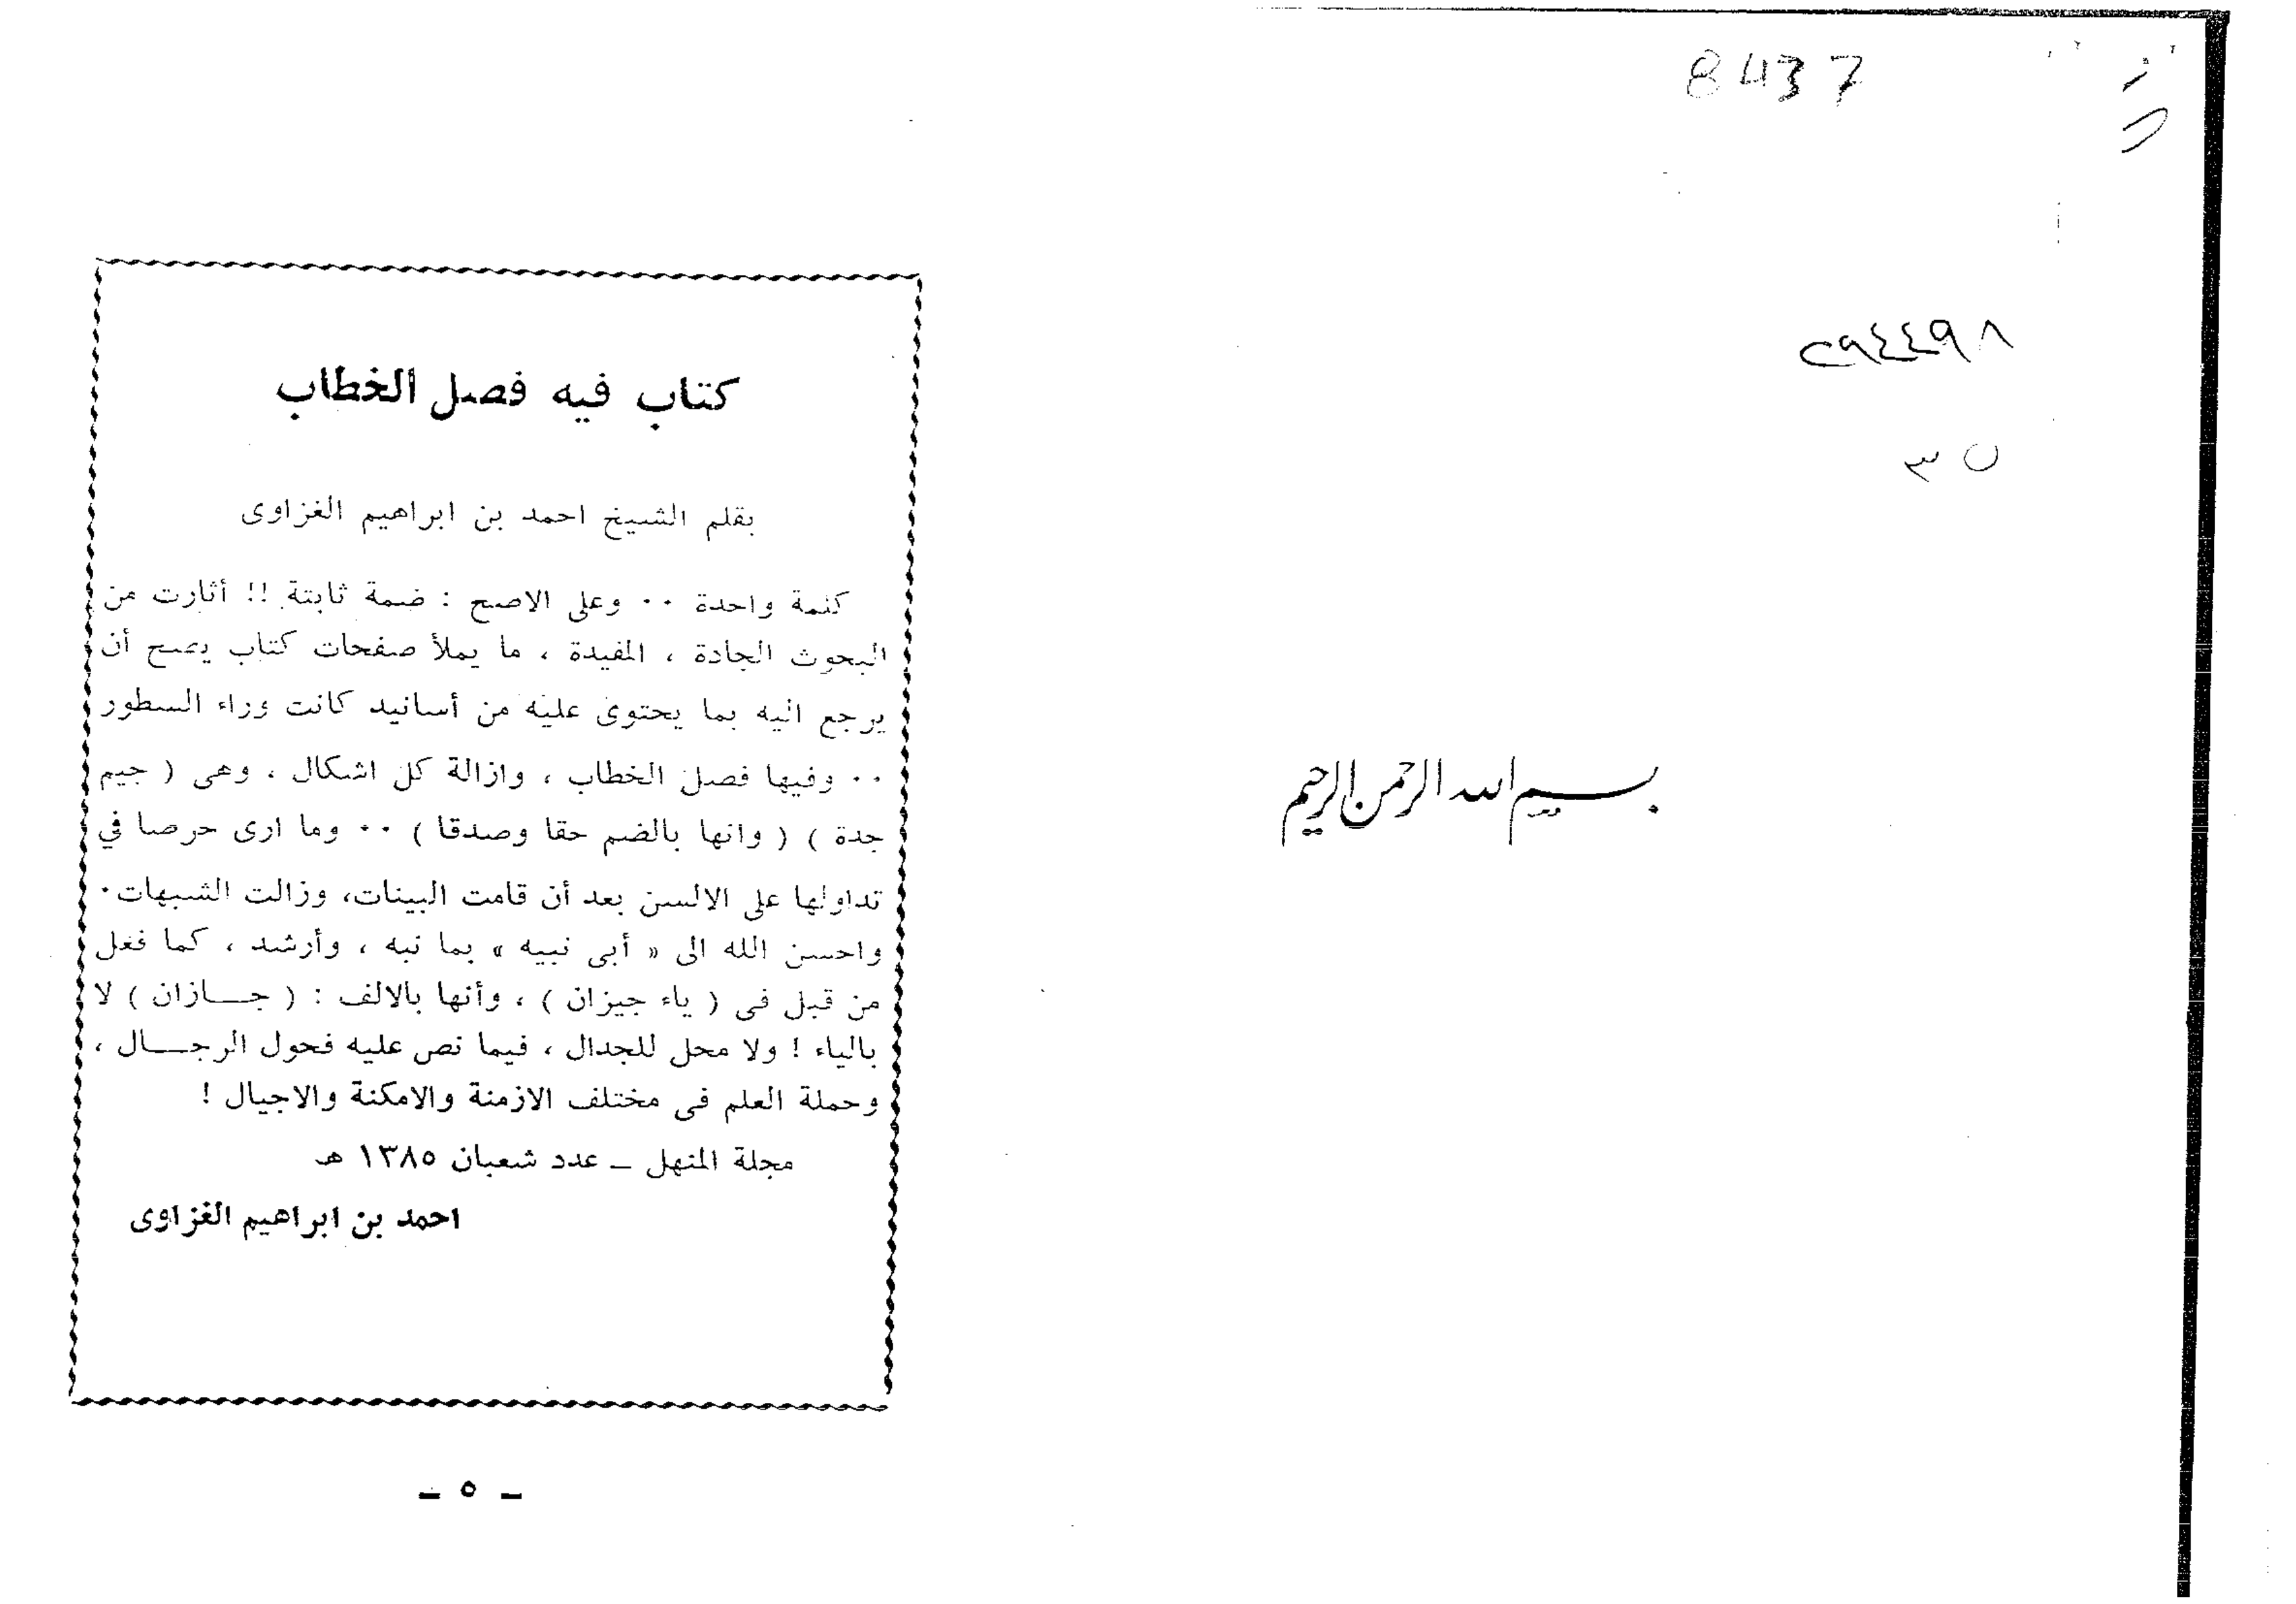 8437
٢٩٤٤٩٨
بسم الله الرحمن الرحيم
كتاب فيه فصل الخطاب
بقلم الشيخ احمد بن ابراهيم الغزاوى
كلمة واحدة ٠٠ وعلى الاصح : ضمة ثابتة !! أثارت من
البحوث الجادة ، المفيدة ، ما يملأ صفحات كتاب يصح أن
يرجع اليه بما يحتوى عليه من أسانيد كانت وراء السطور
٠٠ وفيها فصل الخطاب ، وازالة كل اشكال ، وهى ( جيم
جدة ) ( وانها بالضم حقا وصدقا ) ٠٠ وما ارى حرصا في
تداولها على الالسن بعد أن قامت البينات، وزالت الشبهات٠
واحسن الله الى « أبى نبيه » بما نبه ، وأرشد ، كما فعل
من قبل فى ( ياء جيزان ) ، وأنها بالالف : ( جـــازان ) لا
بالياء ! ولا محل للجدال ، فيما نص عليه فحول الرجـــال ،
وحملة العلم فى مختلف الازمنة والامكنة والاجيال !
مجلة المنهل ــ عدد شعبان ١٣٨٥ هـ
احمد بن ابراهيم الغزاوى
ــ ٥ ــ